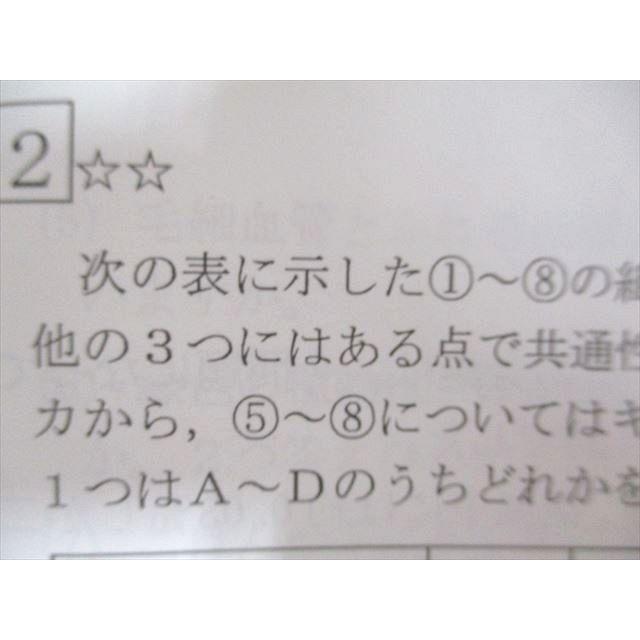 2 ☆☆
次の表に示した①～⑧の組
他の３つにはある点で共通性
カから，⑤～⑧についてはキ
１つはＡ～Ｄのうちどれかを